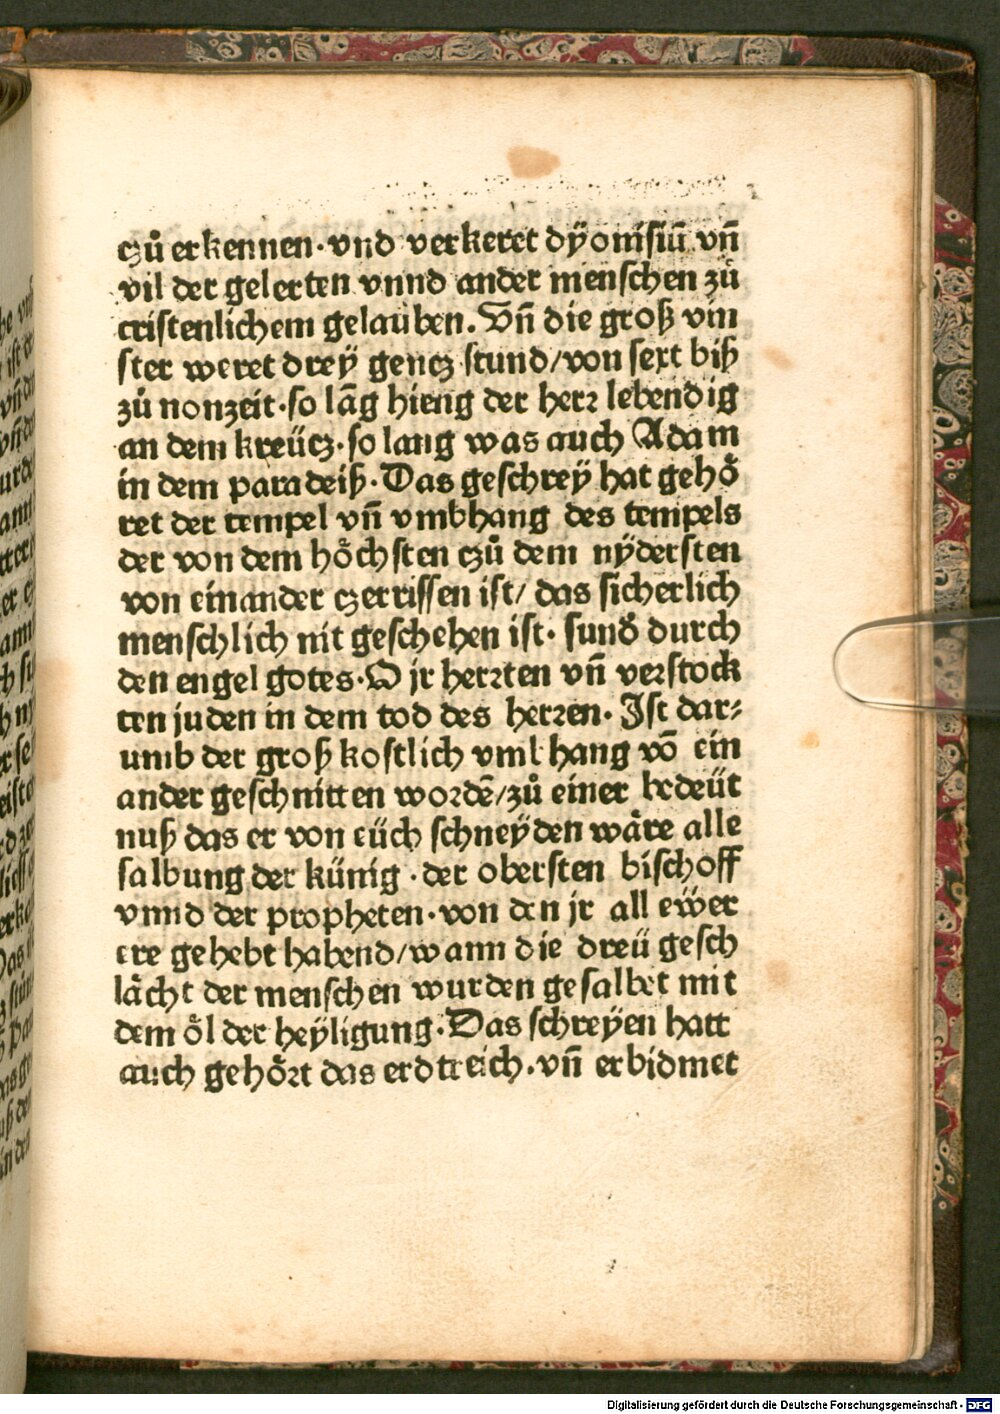 czů erkennen·vnd verkeret dÿonisiū vn̄
vil der gelerten vnnd ander menschen zů
cristenlichem gelauben. Vn̄ die groß vin
ster weret dreÿ gencz stund/von sext biß
zů nonzeit·so lāg hieng der herꝛ lebendig
an dem kreücz·so lang was auch Adam
in dem paradeiß·Das geschrey hat gehoͤ
ret der tempel vn̄ vmbhang des tempels
der von dem hoͤchsten czů dem nÿdersten
von einander czerrissen ist/ das sicherlich
menschlich nit geschehen ist· sunđ durch
den engel gotes·O jr herꝛten vn̄ veꝛstock
ten juden in dem tod des herꝛen· Ist dar⸗
umb der groß kostlich vmbhang vō ein
ander geschnitten woꝛdē/zů einer bedeüt
nuß das er von eüch schneÿden waͤre alle
salbung der künig·der obersten bischoff
vnnd der propheten·von den jr all eẅer
ere gehebt habend/wann die dreü gesch
laͤcht der menschen wurden gesalbet mit
dem oͤl der heÿligung·Das schreyen hatt
auch gehoͤꝛt das erdtreich·vn̄ erbidmet
Digitalisierung gefördert durch die Deutsche Forschungsgemeinschaft - DFG